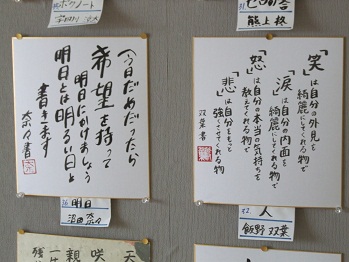 35 ボクノート
31 七回忌
熊上 柊
今日だめだったら
希望を持って
明日にかけましょう
明日とは明るい日と
書きます
奈々書
36 明日
沼田 奈々
「笑」は自分の外見を
綺麗にしてくれる物で
「涙」は自分の内面を
綺麗にしてくれる物で
「怒」は自分の本当の気持ちを
教えてくれる物で
「悲」は自分をもっと
強くしてくれる物
双葉書
32 人
飯野 双葉
天
咲
親
一
残